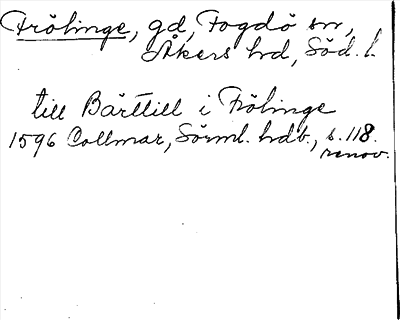 Frölinge, gd, Fogdö sn,
Åkers hd, Söd. l.
till Bärttill i Frölinge
1596 Collmar, Sörml. hdb., s. 118.
renov.